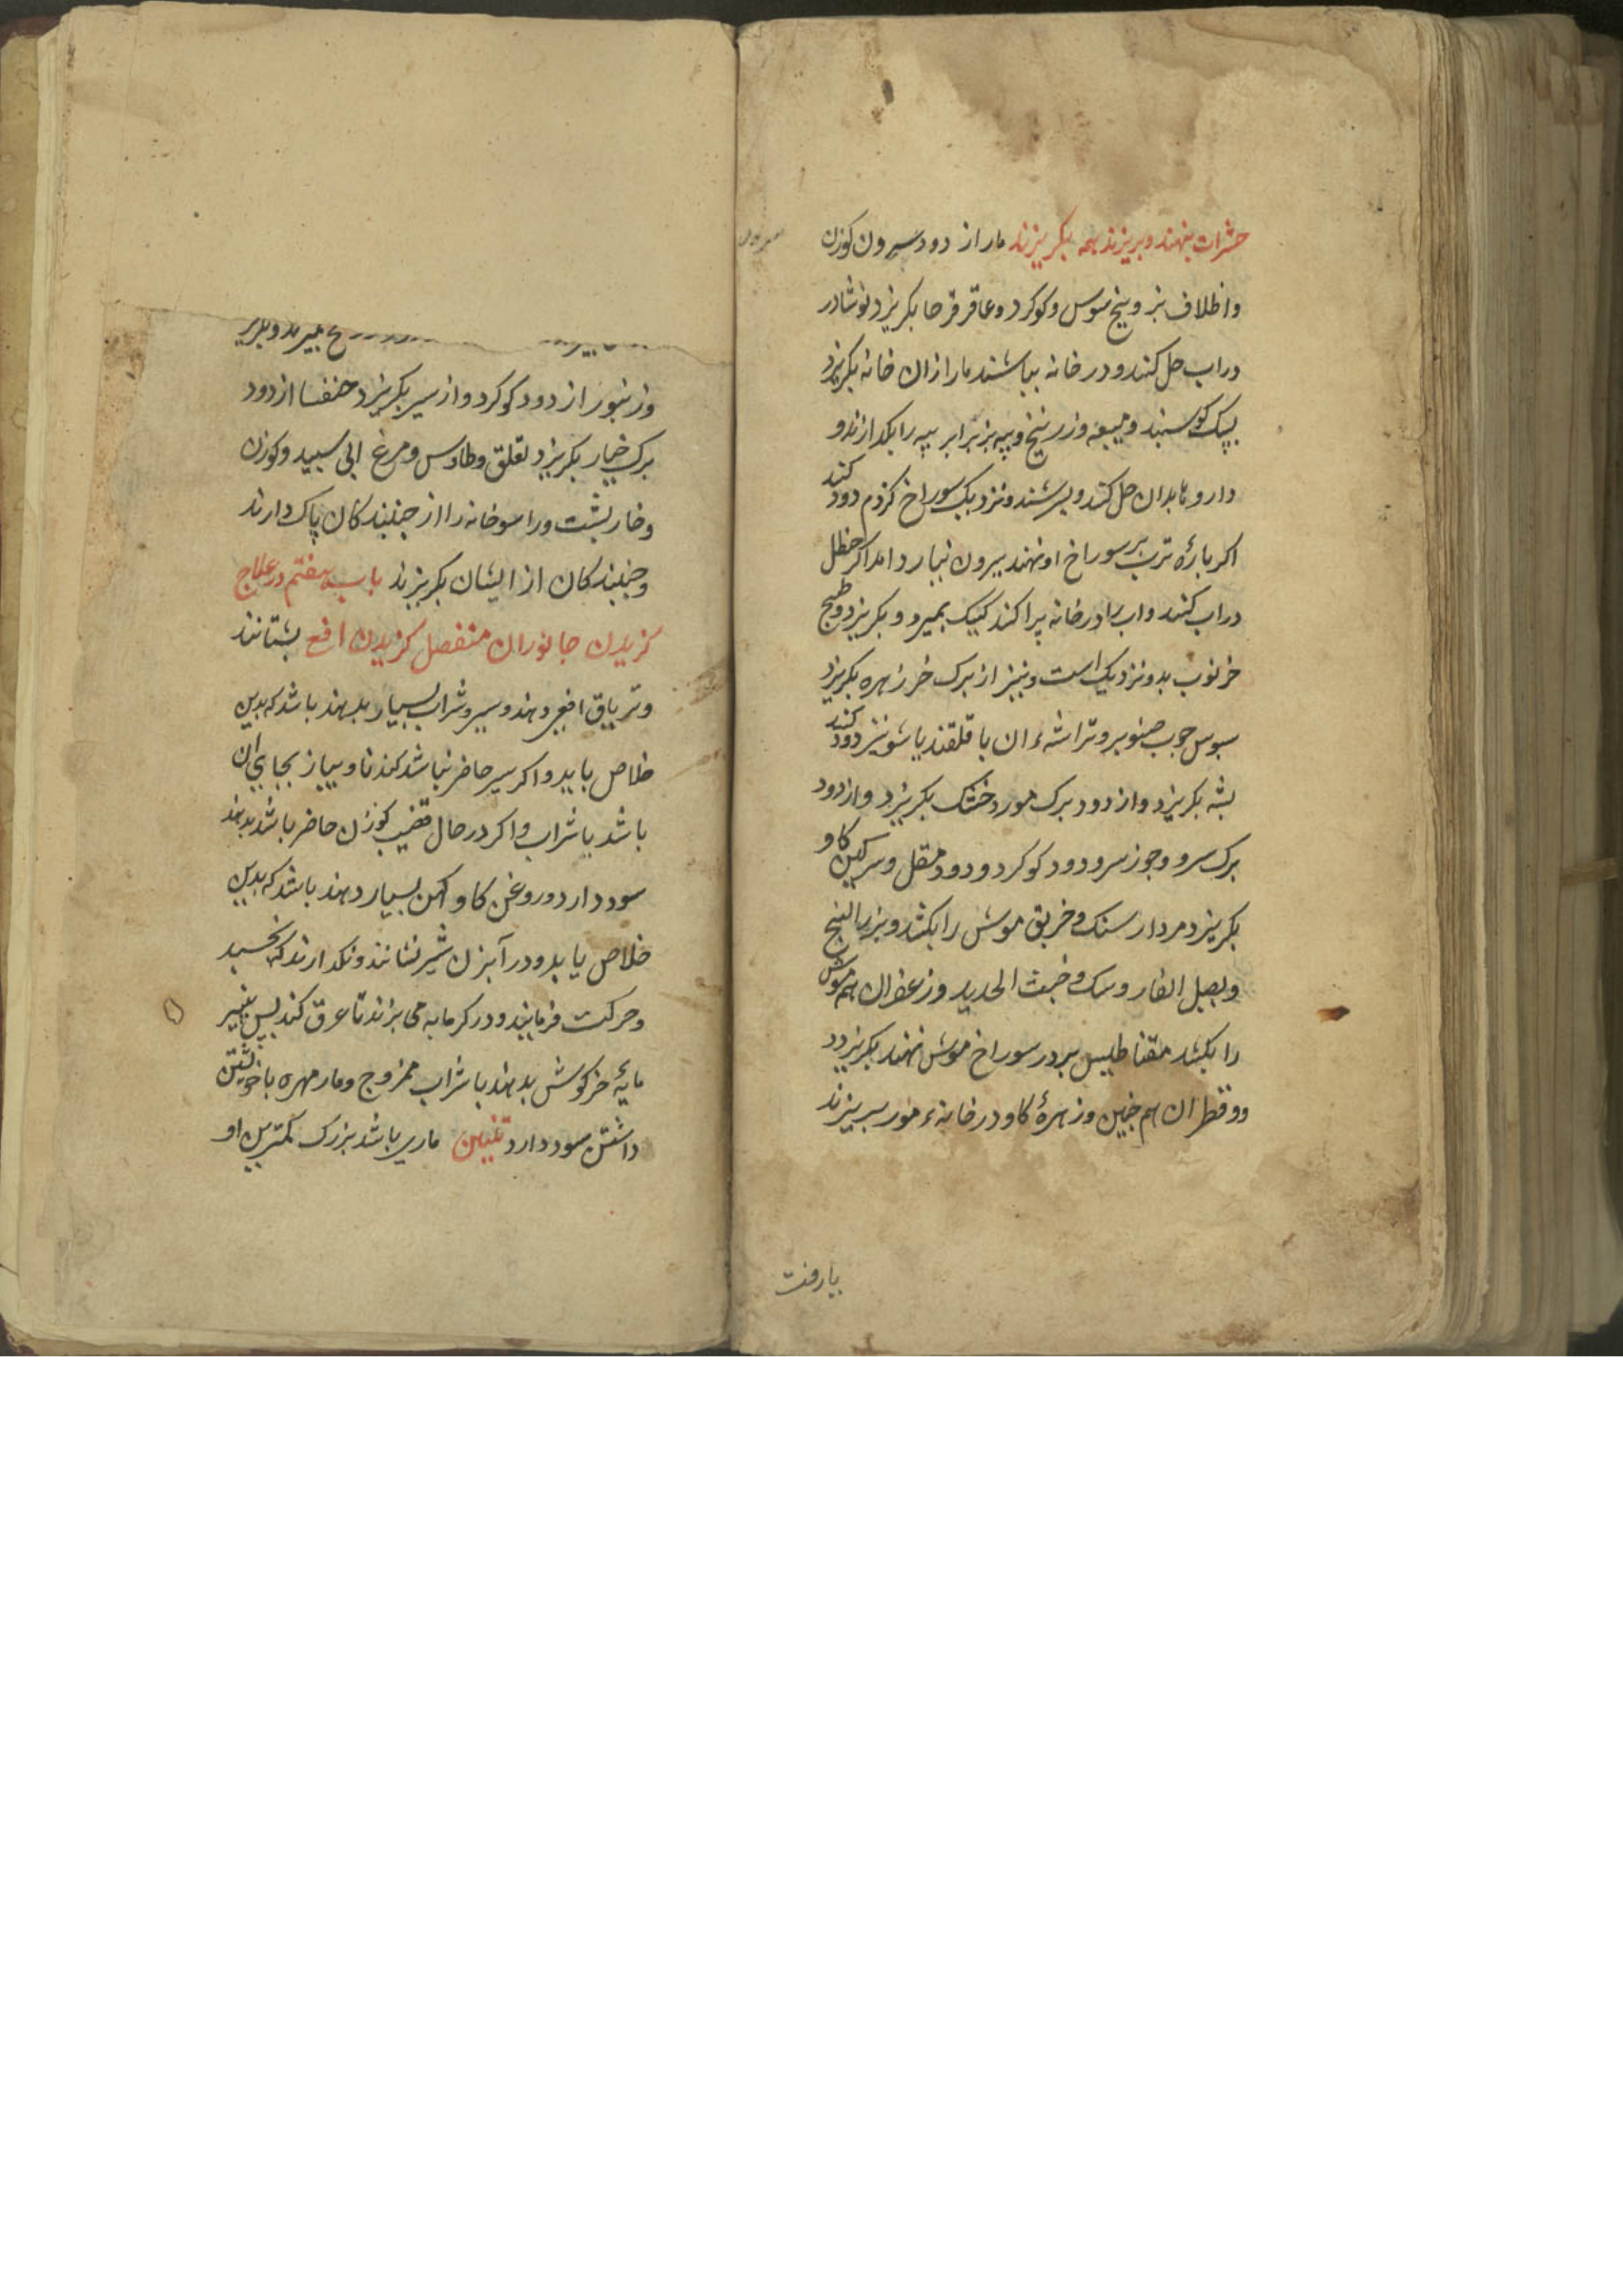 حشرات بنهند و بریزند همه بکریزند مار از دود سرون کوزن
واظلاف بز و بیخ سوس و کوکرد و عاقرقرحا بکریزد نوشادر
در اب حل کنند و در خانه بپاشند مار ازان خانه بکریزد
پشک کوسبند و میعه و زرنیخ و پیه بز برابر پیه را بکدازند و
داروها بدان حل کنند و بسرشند و نزدیک سوراخ کزدم دود کنند
اکر پارهٔ ترب بر سوراخ او نهند بیرون نیارد امد اکر حنظل
در اب کنند و اب را در خانه پراکنند کیک بمیرد و بکریزد و طبیخ
خرنوب بدو نزدیک است و نیز از برک خرزهره بکریزد
سبوس چوب صنوبر و تراشهٔ ان با قلقند یا شونیز دود کنند
پشه بکریزد و از دود برک مورد خشک بکریزد و از دود
برک سرو و جوز سرو و دود کوکرد و دود مقل و سرکین کاو
بکریزد مردارسنک و خربق موش را بکشد و بزرالبنج
و بصل الفار و سک و خبث الحدید و زعفران هم موش
را بکشد مقناطیس بر در سوراخ موش نهند بکریزد
و قطران هم چنین و زهرهٔ کاو در خانهٔ مور بریزند
یا زفت
بمیرند و بکریزند
و زنبور از دود کوکرد و از سیر بکریزد خنفسا از دود
برک خیار بکریزد لقلق و طاوس و مرغ ابی سبید و کوزن
و خارپشت و راسو خانه را از جنبندکان پاک دارند
و جنبندکان از ایشان بکریزند باب هفتم در علاج
کزیدن جانوران منفصل کزیدن افعی بستانند
و تریاق افعی دهند و سیر و شراب بسیار بدهند باشد که بدین
خلاص یابد و اکر سیر حاضر نباشد کندنا و بیاز بجای ان
باشد با شراب و اکر در حال قضیب کوزن حاضر باشد بدهند
سود دارد و روغن کاو کهن بسیار دهند باشد که بدین
خلاص یابد و در آبزن شیر نشانند و نکدارند که بخسبد
و حرکت فرمایند و در کرمابه می برند تا عرق کند پس پنیر
مایهٔ خرکوش بدهند با شراب ممزوج و مار مهره با خویشتن
داشتن سود دارد تنین ماری باشد بزرک کمترین او